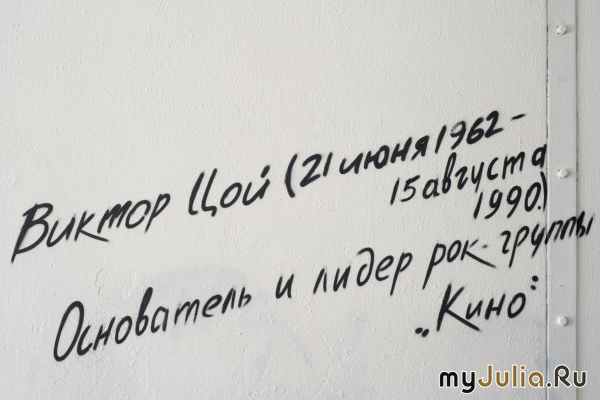 Виктор Цой (21 июня 1962 –
15 августа
1990.)
Основатель и лидер рок-группы
„Кино“
myJulia.Ru